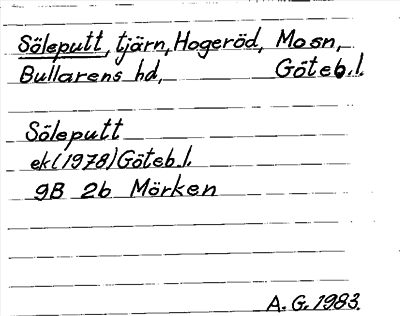 Söleputt, tjärn, Hogeröd, Mosn,
Bullarens hd, Göteb.l.
Söleputt
ek(1978)Göteb.l.
9B 2b Mörken
A.G. 1983.